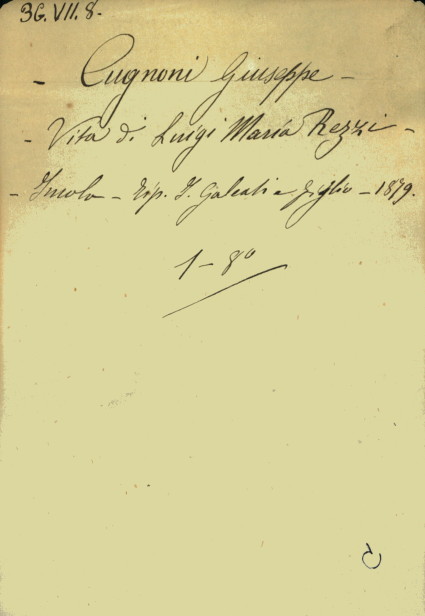 36.VII.8.
- Cugnoni Giuseppe -
- Vita di Luigi Maria Rezzi -
- Imola - Tip. I. Galeati e figlio - 1879.
1 - 8º